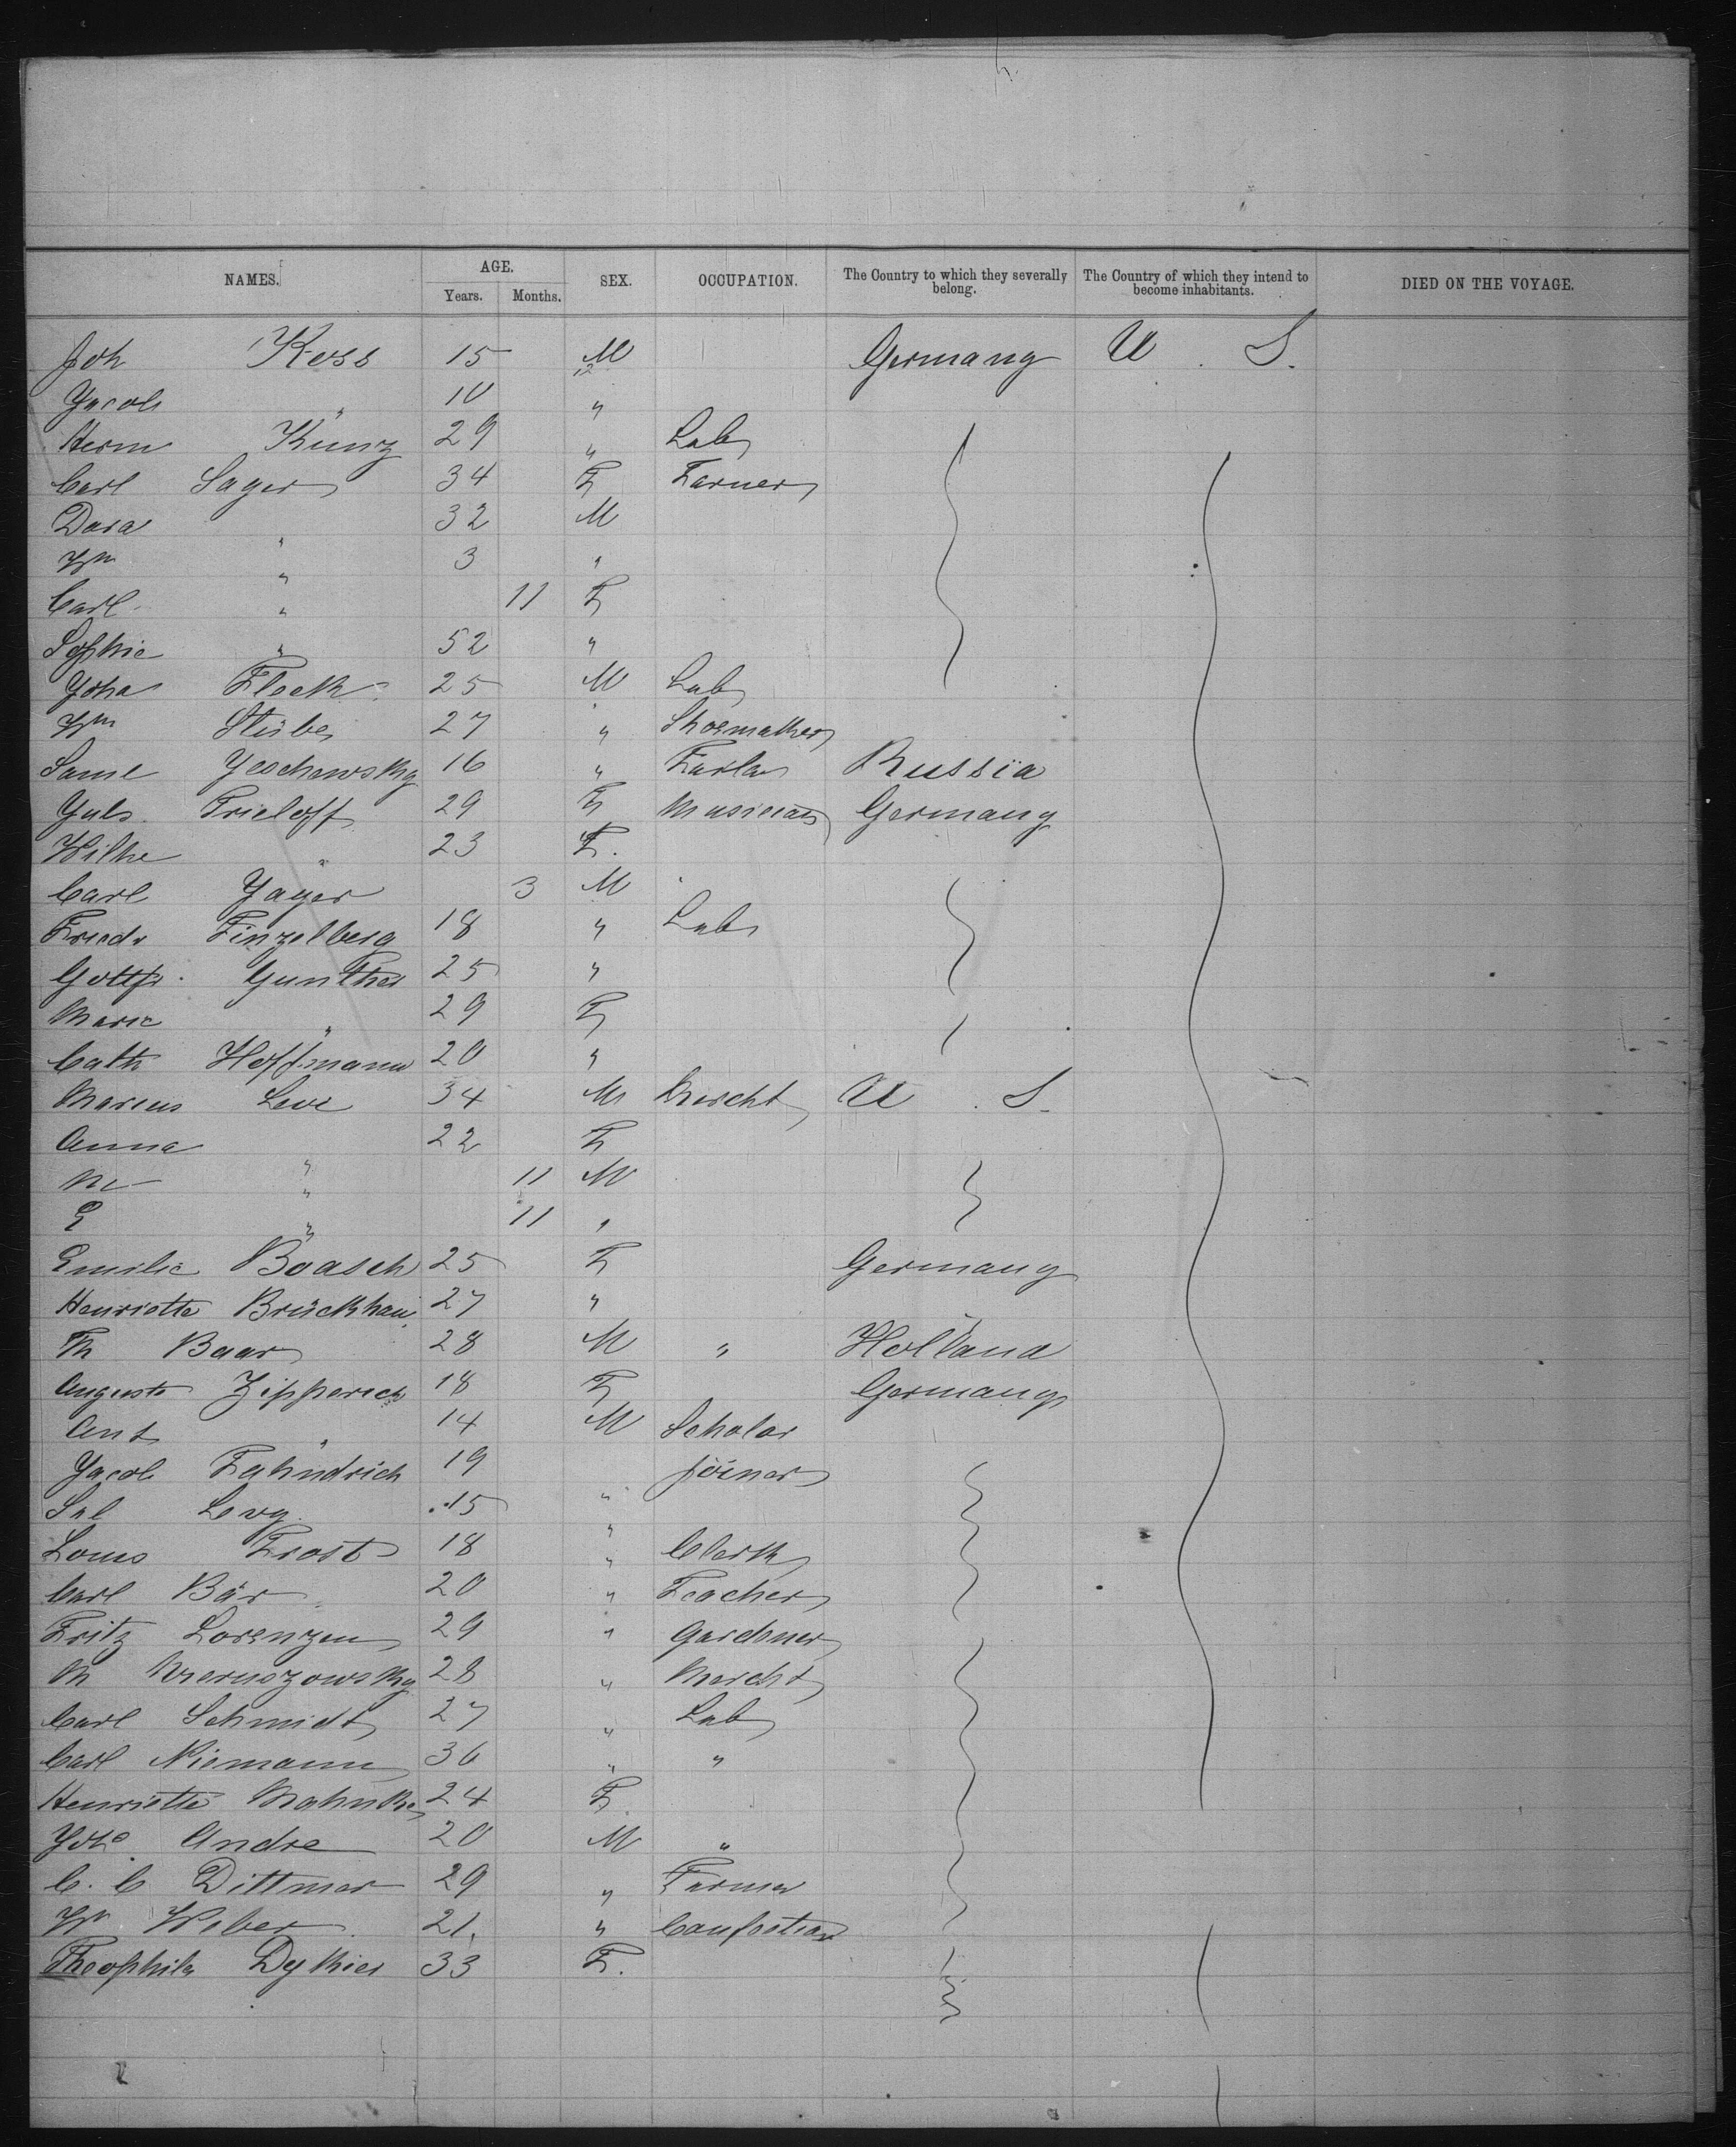 NAMES. AGE. SEX. OCCUPATION. The Country to which they severally belong. The Country of which they intend to become inhabitants. DIED ON THE VOYAGE.
Years. Months.
Joh Kess 15 M Germany U. S.
Jacob " 10 "
Herm Kunz 29 " Lab
Carl Sager 34 F Farmer
Dora " 32 M
Wm " 3 "
Carl " 11 F
Sophie " 52 "
Joha Fleck 25 M Lab
Wm Stübe 27 " Shoemaker
Saml Jeschewsky 16 " Russia
Juls Trieloff 29 F Musician Germany
Wilhe " 23 F.
Carl Jager 3 M
Friedr Finzelberg 18 " Lab
Gottfr. Gunther 25 "
Marie " 29 F
Cath Hoffmann 20 "
Marcus Leve 34 M Mercht U. S.
Anna " 22 F
M " 11 M
E " 11 "
Emilie Boasch 25 F Germany
Henriette Brückhau 27 "
Th Baar 28 M " Holland
Auguste Zipperich 18 F Germany
Ant " 14 M Scholar
Jacob Fähndrich 19 " Joiner
Sal Levy 15 "
Louis Frost 18 " Clerk
Carl Bär 20 " Teacher
Fritz Lorenzen 29 " Gardener
M 28 " Mercht
Carl Schmidt 27 " Lab
Carl Niemann 36 " "
Henriette Mahnke 24 F.
Johe. Andre 20 M "
C. C Dittmer 29 " Farmer
Wm Weber 21. "
Theophila Dykier 33 F.